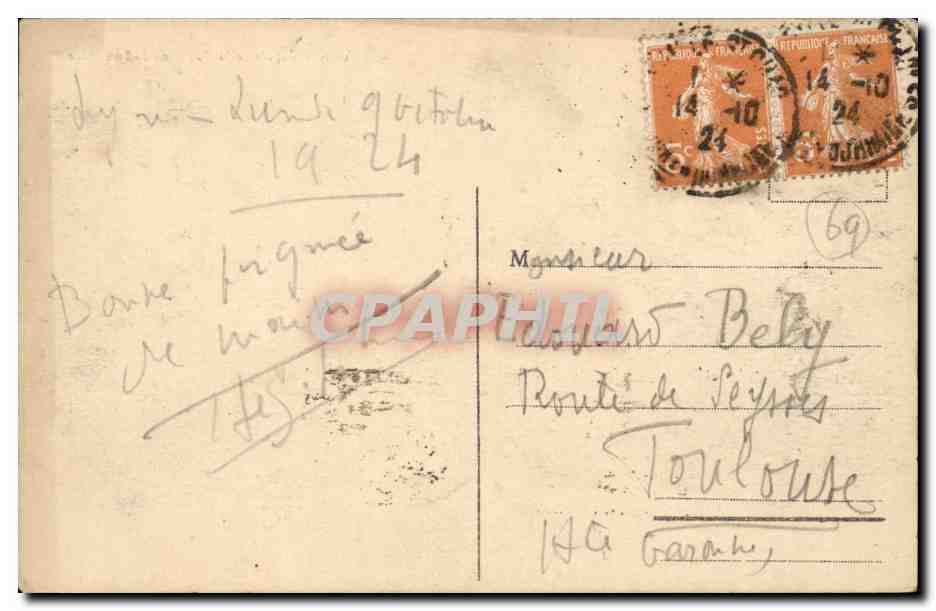 Lyon Lundi 9 Octobre
1924
Bonne poignée
de main
RÉPUBLIQUE FRANÇAISE
14 -10
24
RÉPUBLIQUE FRANÇAISE
14 -10
24
69
Monsieur
Edouard Beby
Route de Seysses
Toulouse
Hte Garonne
CPAPHIL